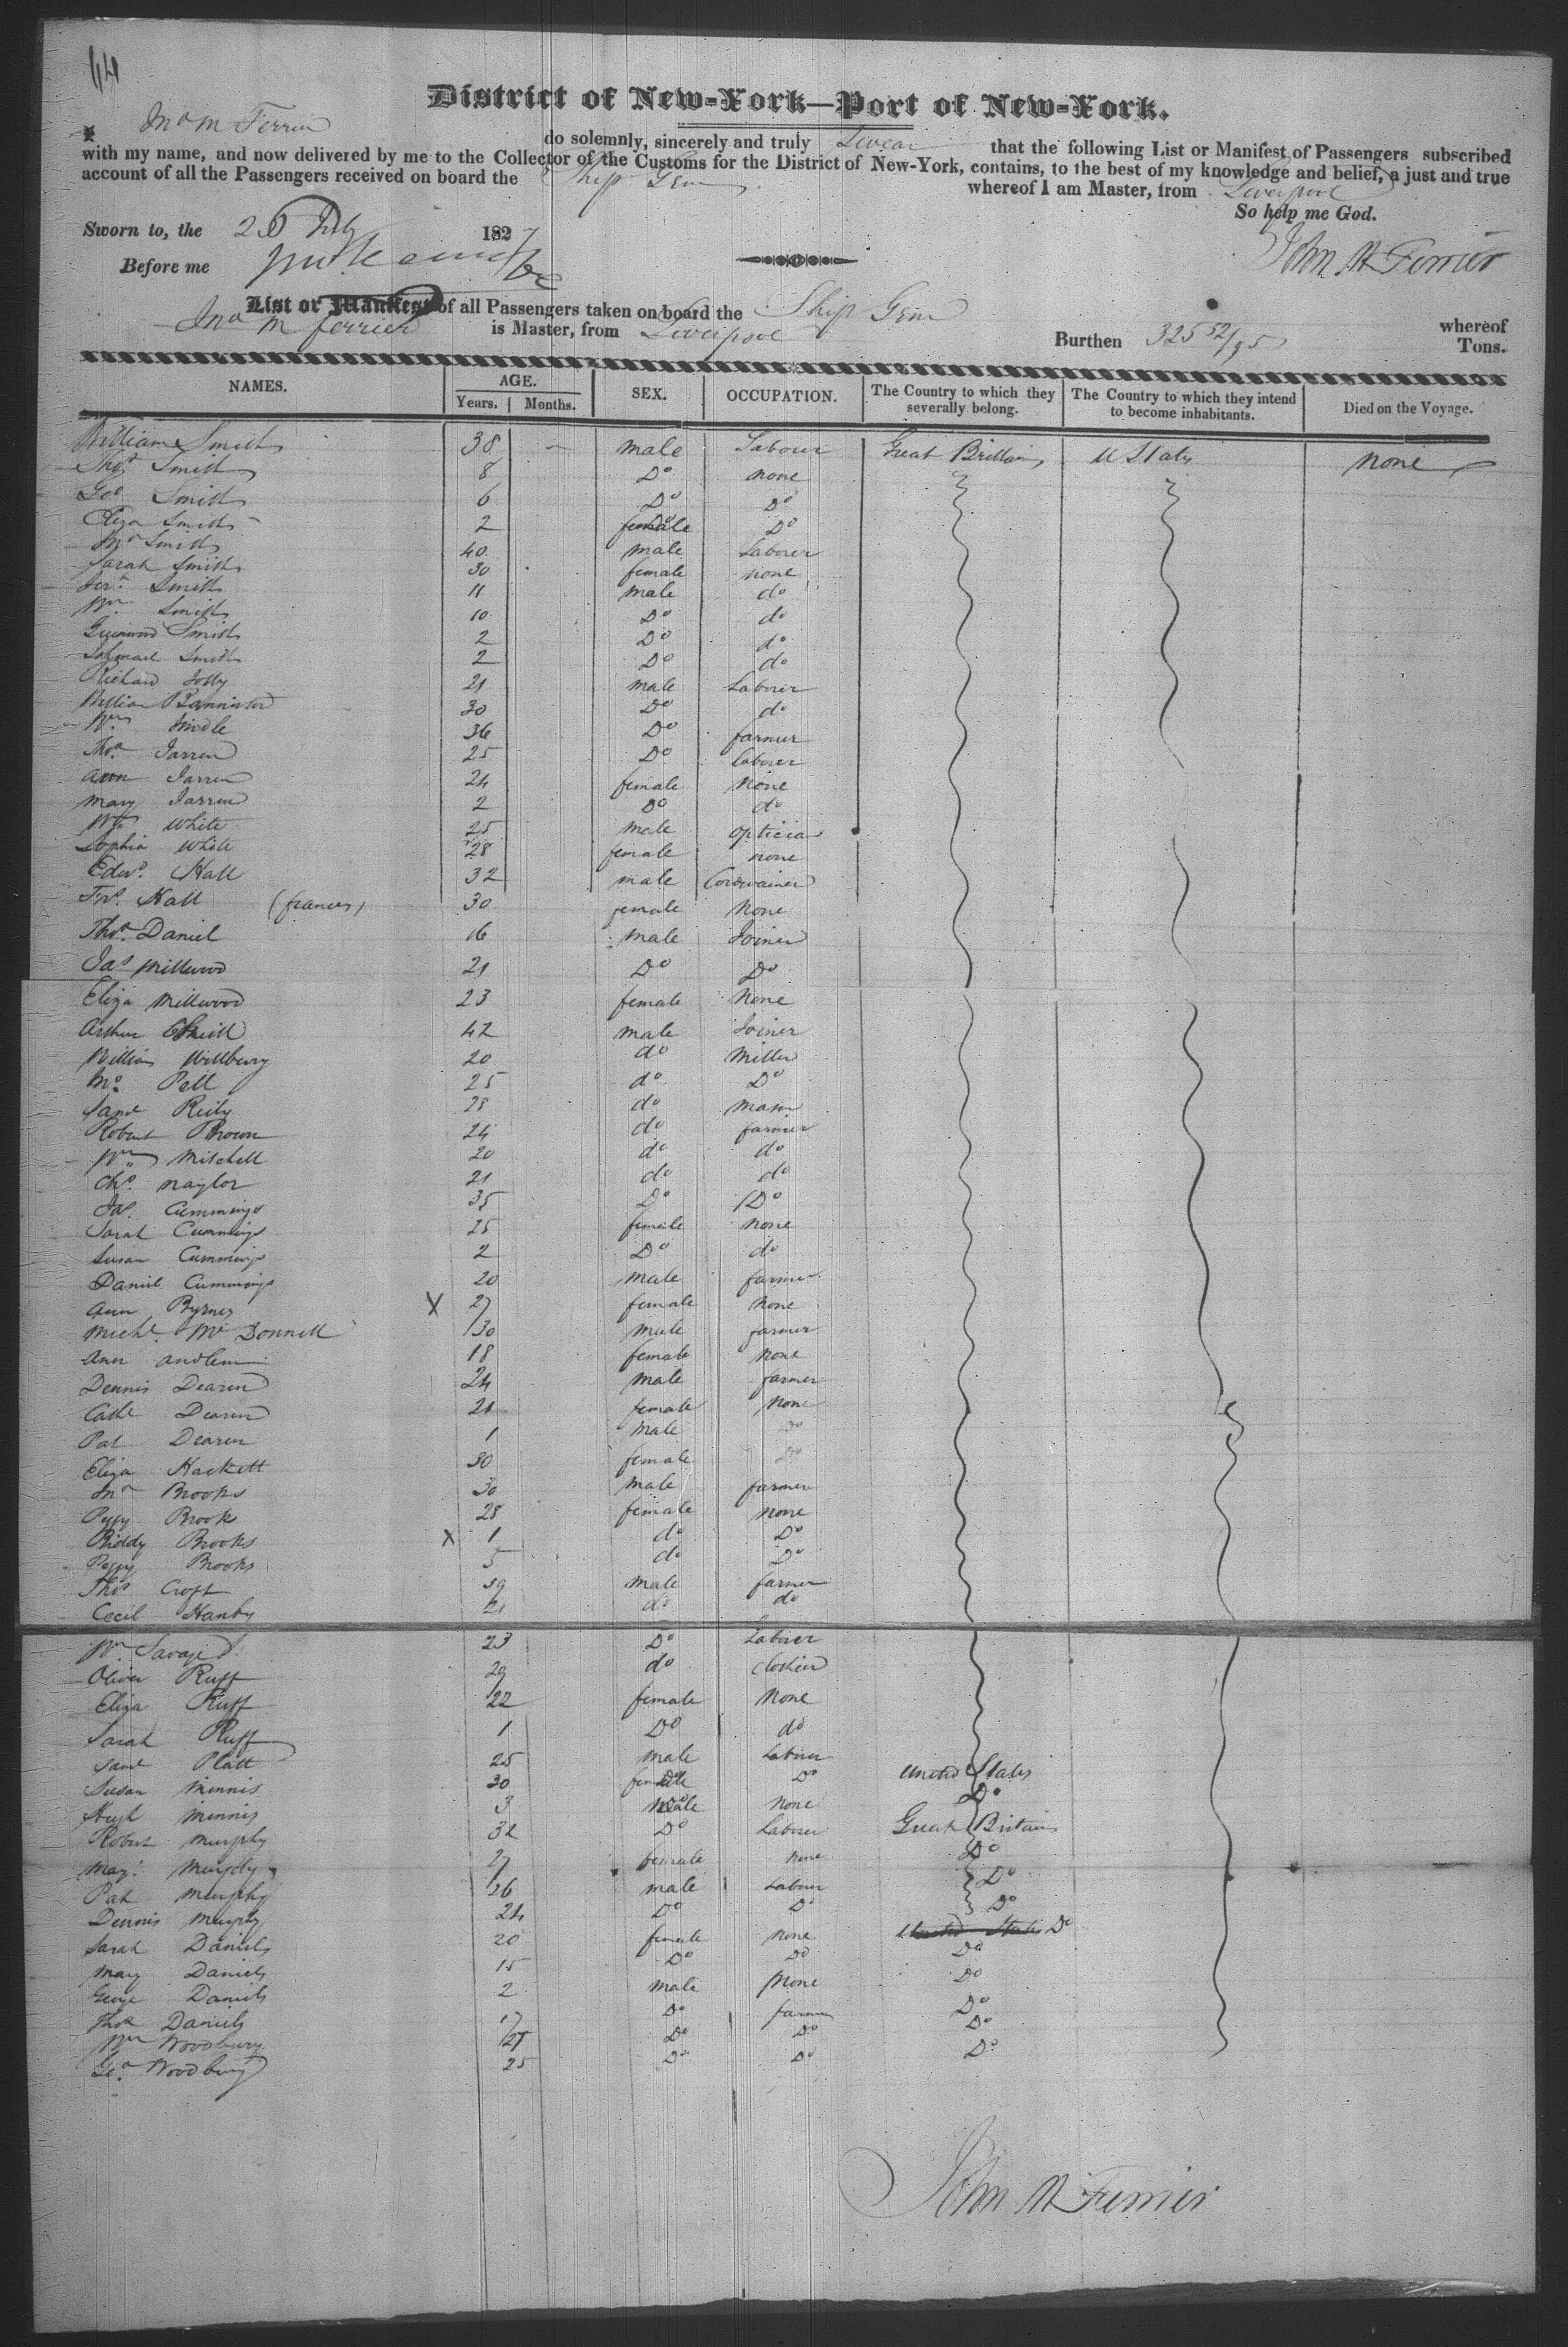 44
District of New-York—Port of New-York.
I Jno M Ferrier do solemnly, sincerely and truly Swear that the following List or Manifest of Passengers subscribed
with my name, and now delivered by me to the Collector of the Customs for the District of New-York, contains, to the best of my knowledge and belief, a just and true
account of all the Passengers received on board the Ship Gem whereof I am Master, from Liverpool
So help me God.
Sworn to, the 20 July 1827
John M Ferrier
Before me
List or Manifest of all Passengers taken on board the Ship Gem whereof
Jno M Ferrier is Master, from Liverpool Burthen 325 52/95 Tons.
NAMES. AGE. Years. Months. SEX. OCCUPATION. The Country to which they severally belong. The Country to which they intend to become inhabitants. Died on the Voyage.
William Smith 38 — male Labour Great Brittain U States none
Thos Smith 8 Do none
Geo Smith 6 Do Do
Eliza Smith 2 female Do
Jno Smith 40 male Laborer
Sarah Smith 30 female none
Smith 11 male do
Wm Smith 10 Do do
Greenwood Smith 2 Do do
Ishmael Smith 2 Do do
Richard Jolly 21 male Laborer
William Bannister 30 Do do
Wm Hindle 36 Do farmer
Thos Jarren 25 Do laborer
Ann Jarren 24 female None
Mary Jarren 2 Do do
Wm White 25 male optician
Sophia White 28 female none
Edwd Hall 32 male Cordwainer
Frs Hall (frances) 30 female None
Thos Daniel 16 male Joiner
Jas Millwood 21 Do Do
Eliza Millwood 23 female None
Arthur ONeill 42 male Joiner
William Willberry 20 do Miller
Jno Pell 25 do Do
Saml Reily 28 do mason
Robert Brown 24 do farmer
Wm Mitchell 20 do do
Chs Naylor 21 do do
Jas Cummings 35 Do Do
Sarah Cummings 25 female none
Susan Cummings 2 Do do
Daniel Cummings 20 male farmer
Ann Byrnes X 27 female None
Michl McDonnell 30 male farmer
Ann 18 female None
Dennis Dearen 24 male farmer
Cath Dearen 21 female None
Pat Dearen 1 male Do
Eliza Hackett 30 female Do
Jno Brooks 30 male farmer
Peggy Brook 28 female None
Biddy Brooks X 1 do Do
Peggy Brooks 5 do Do
Thos Croft 39 male farmer
Cecil Hanby 21 do do
Wm Savage 23 Do Laborer
Oliver Ruff 29 do clothier
Eliza Ruff 22 female None
Sarah Ruff 1 Do do
Saml Platt 25 male Labour
Susan Minnis 30 female Do United States
Hugh Minnis 3 Male none Do
Robert Murphy 32 Do Labour Great Britain
Mary Murphy 27 female none Do
Pat Murphy 26 male Labour Do
Dennis Murphy 24 Do Do Do
Sarah Daniels 20 female none United States Do
Mary Daniels 15 Do Do Do
George Daniels 2 male None Do
Thos Daniels 17 Do farmer Do
Wm Woodbury 27 Do Do Do
Geo Woodbury 25 Do Do Do
John M Ferrier